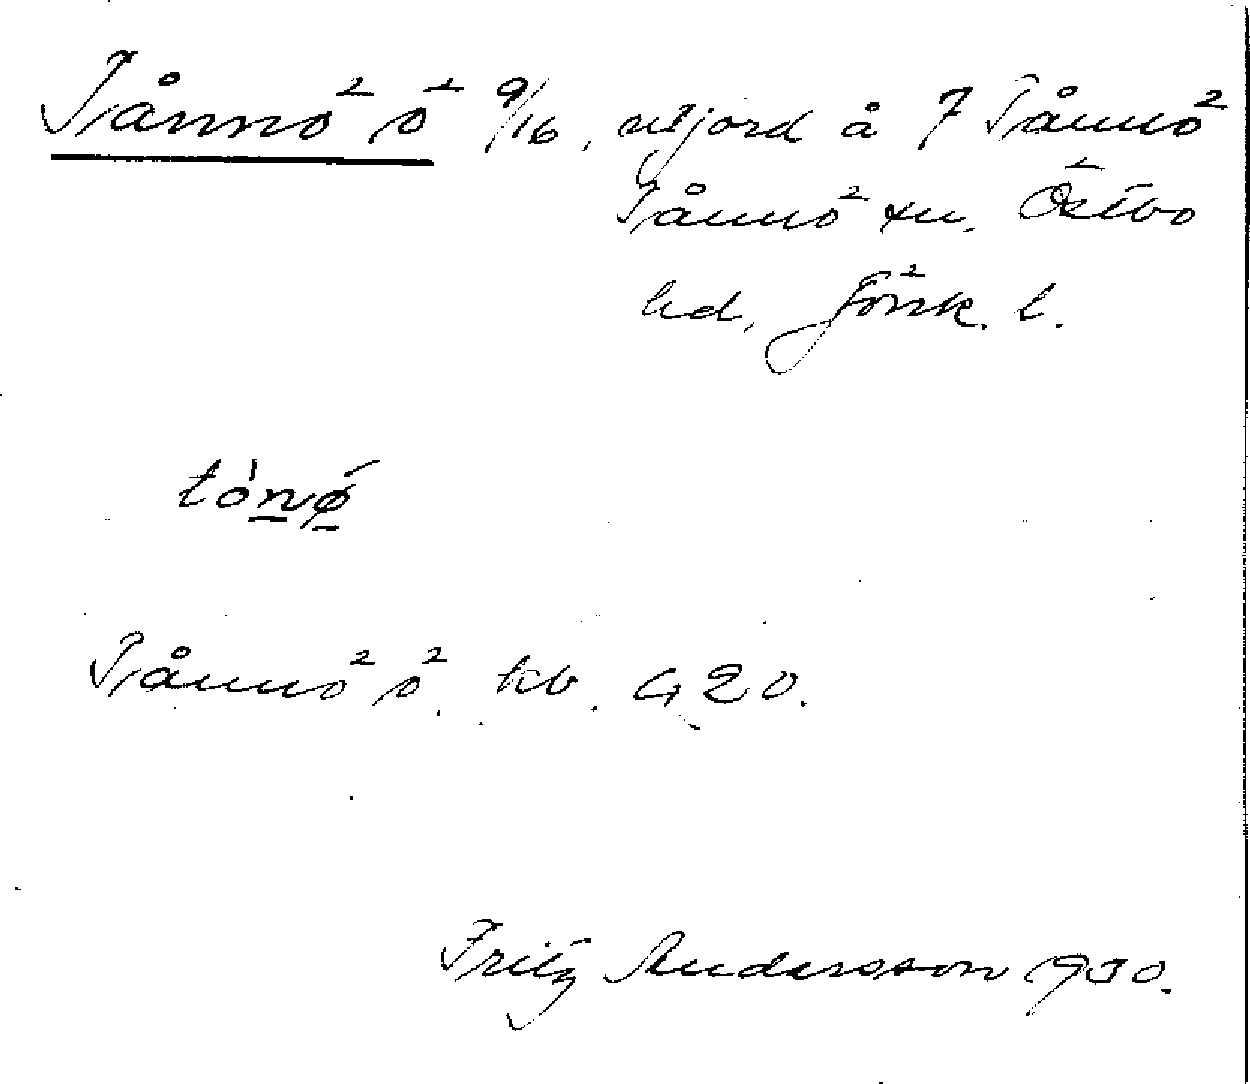 Tånnö ö 9/16, utjord å 7 Tånnö
Tånnö sn. Östbo
hd. Jönk. l.
tónø
Tånnö ö. kb. G 20.
Fritz Andersson 1930.